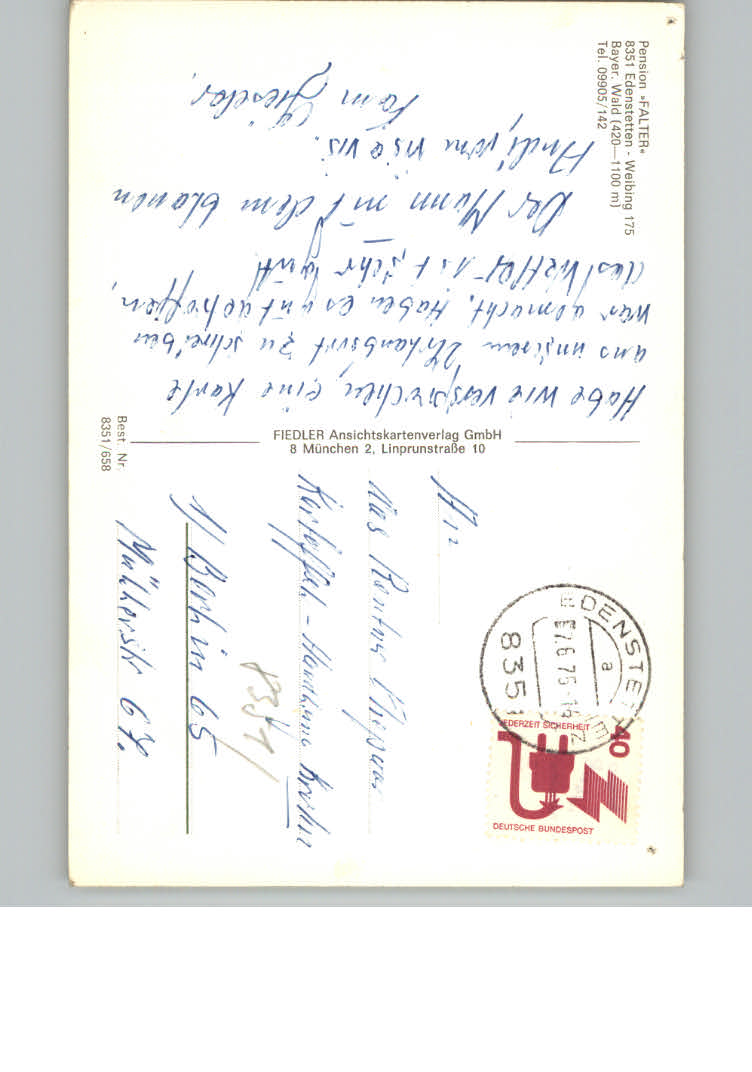 Pension »FALTER«
8351 Edenstetten - Weibing 175
Bayer. Wald (420—1100 m)
Tel. 09905/142
Habe wie versprochen, eine Karte
aus unserem Urlaubsort zu schreiben
war gemacht. Haben es gut getroffen,
das Wetter ist sehr gut
Der Mann mit dem blauen
Audi, vom vis a vis.
Fam
FIEDLER Ansichtskartenverlag GmbH
8 München 2, Linprunstraße 10
Best. Nr.
8351/658
An
das
Kartoffel-Handlung
1/ Berlin 65
Müllerstr 67.
8351
EDENSTETTEN
a
7.6.75
8351
JEDERZEIT SICHERHEIT
40
DEUTSCHE BUNDESPOST